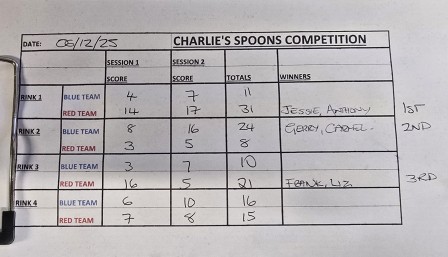 DATE: 05/12/25 CHARLIE'S SPOONS COMPETITION
SESSION 1 SESSION 2
SCORE SCORE TOTALS WINNERS
RINK 1 BLUE TEAM 4 7 11
RED TEAM 14 17 31 JESSIE, ANTHONY 1ST
RINK 2 BLUE TEAM 8 16 24 GERRY, CARMEL. 2ND
RED TEAM 3 5 8
RINK 3 BLUE TEAM 3 7 10
RED TEAM 16 5 21 FRANK, LIZ 3RD
RINK 4 BLUE TEAM 6 10 16
RED TEAM 7 8 15